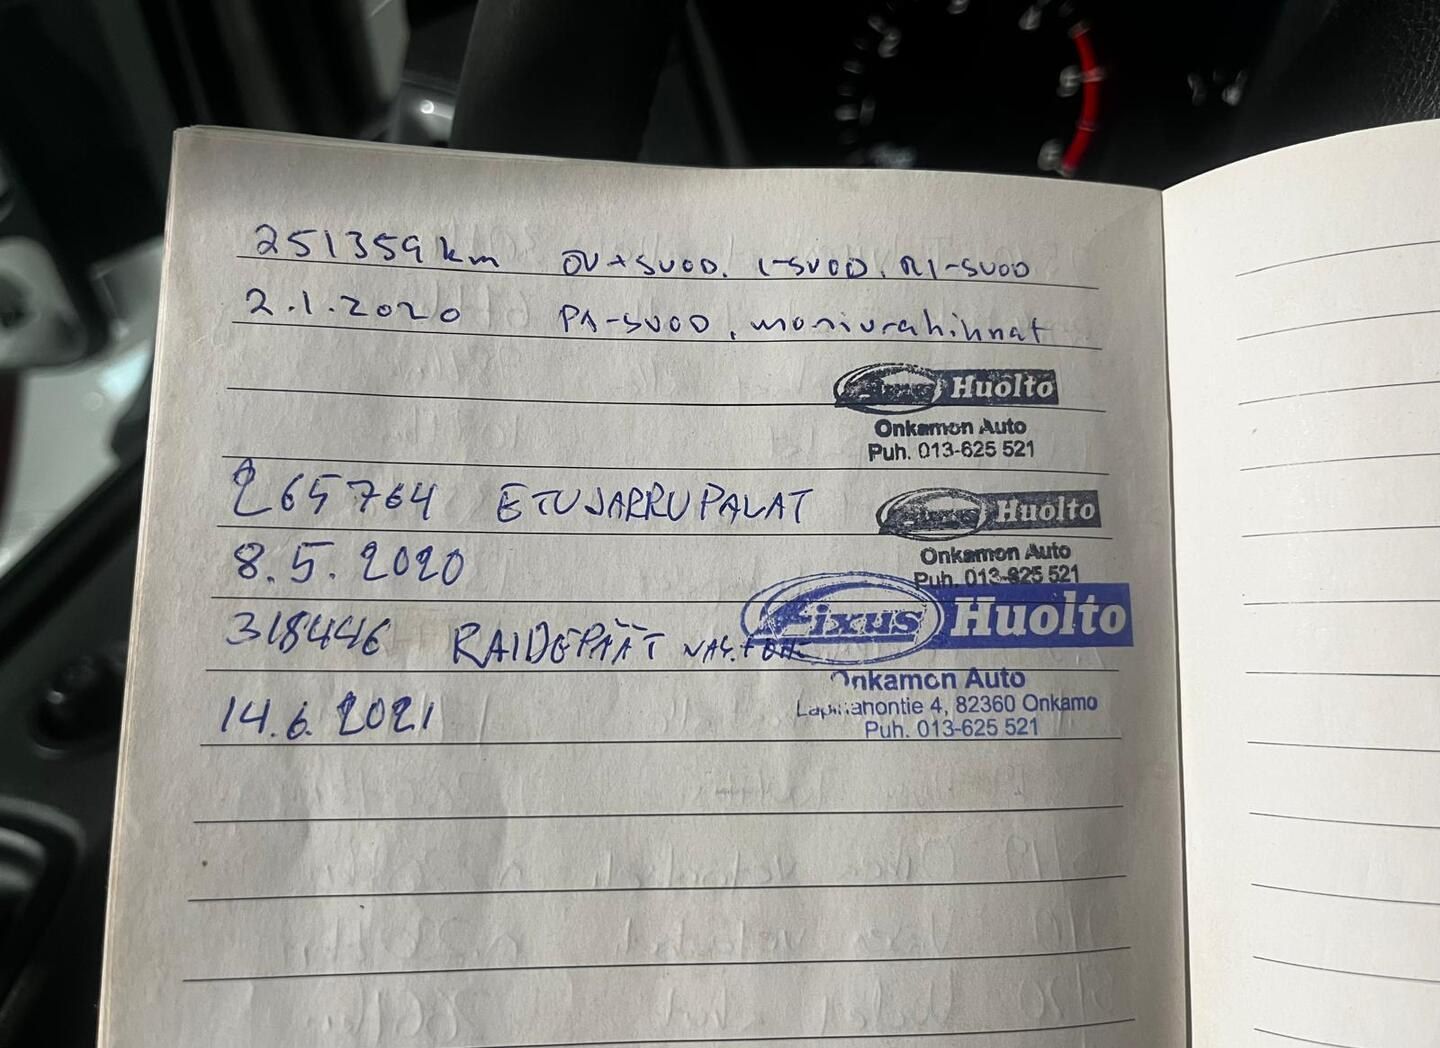 251359 km ÖV+SUOD. I-SUOD. RI-SUOD
2.1.2020 PA-SUOD, moniurahihnat
Fixus Huolto
Onkamon Auto
Puh. 013-625 521
265764 ETUJARRUPALAT
Fixus Huolto
Onkamon Auto
Puh. 013-625 521
8.5.2020
Fixus Huolto
318446 RAIDEPÄÄT
Onkamon Auto
14.6.2021
4, 82360 Onkamo
Puh. 013-625 521